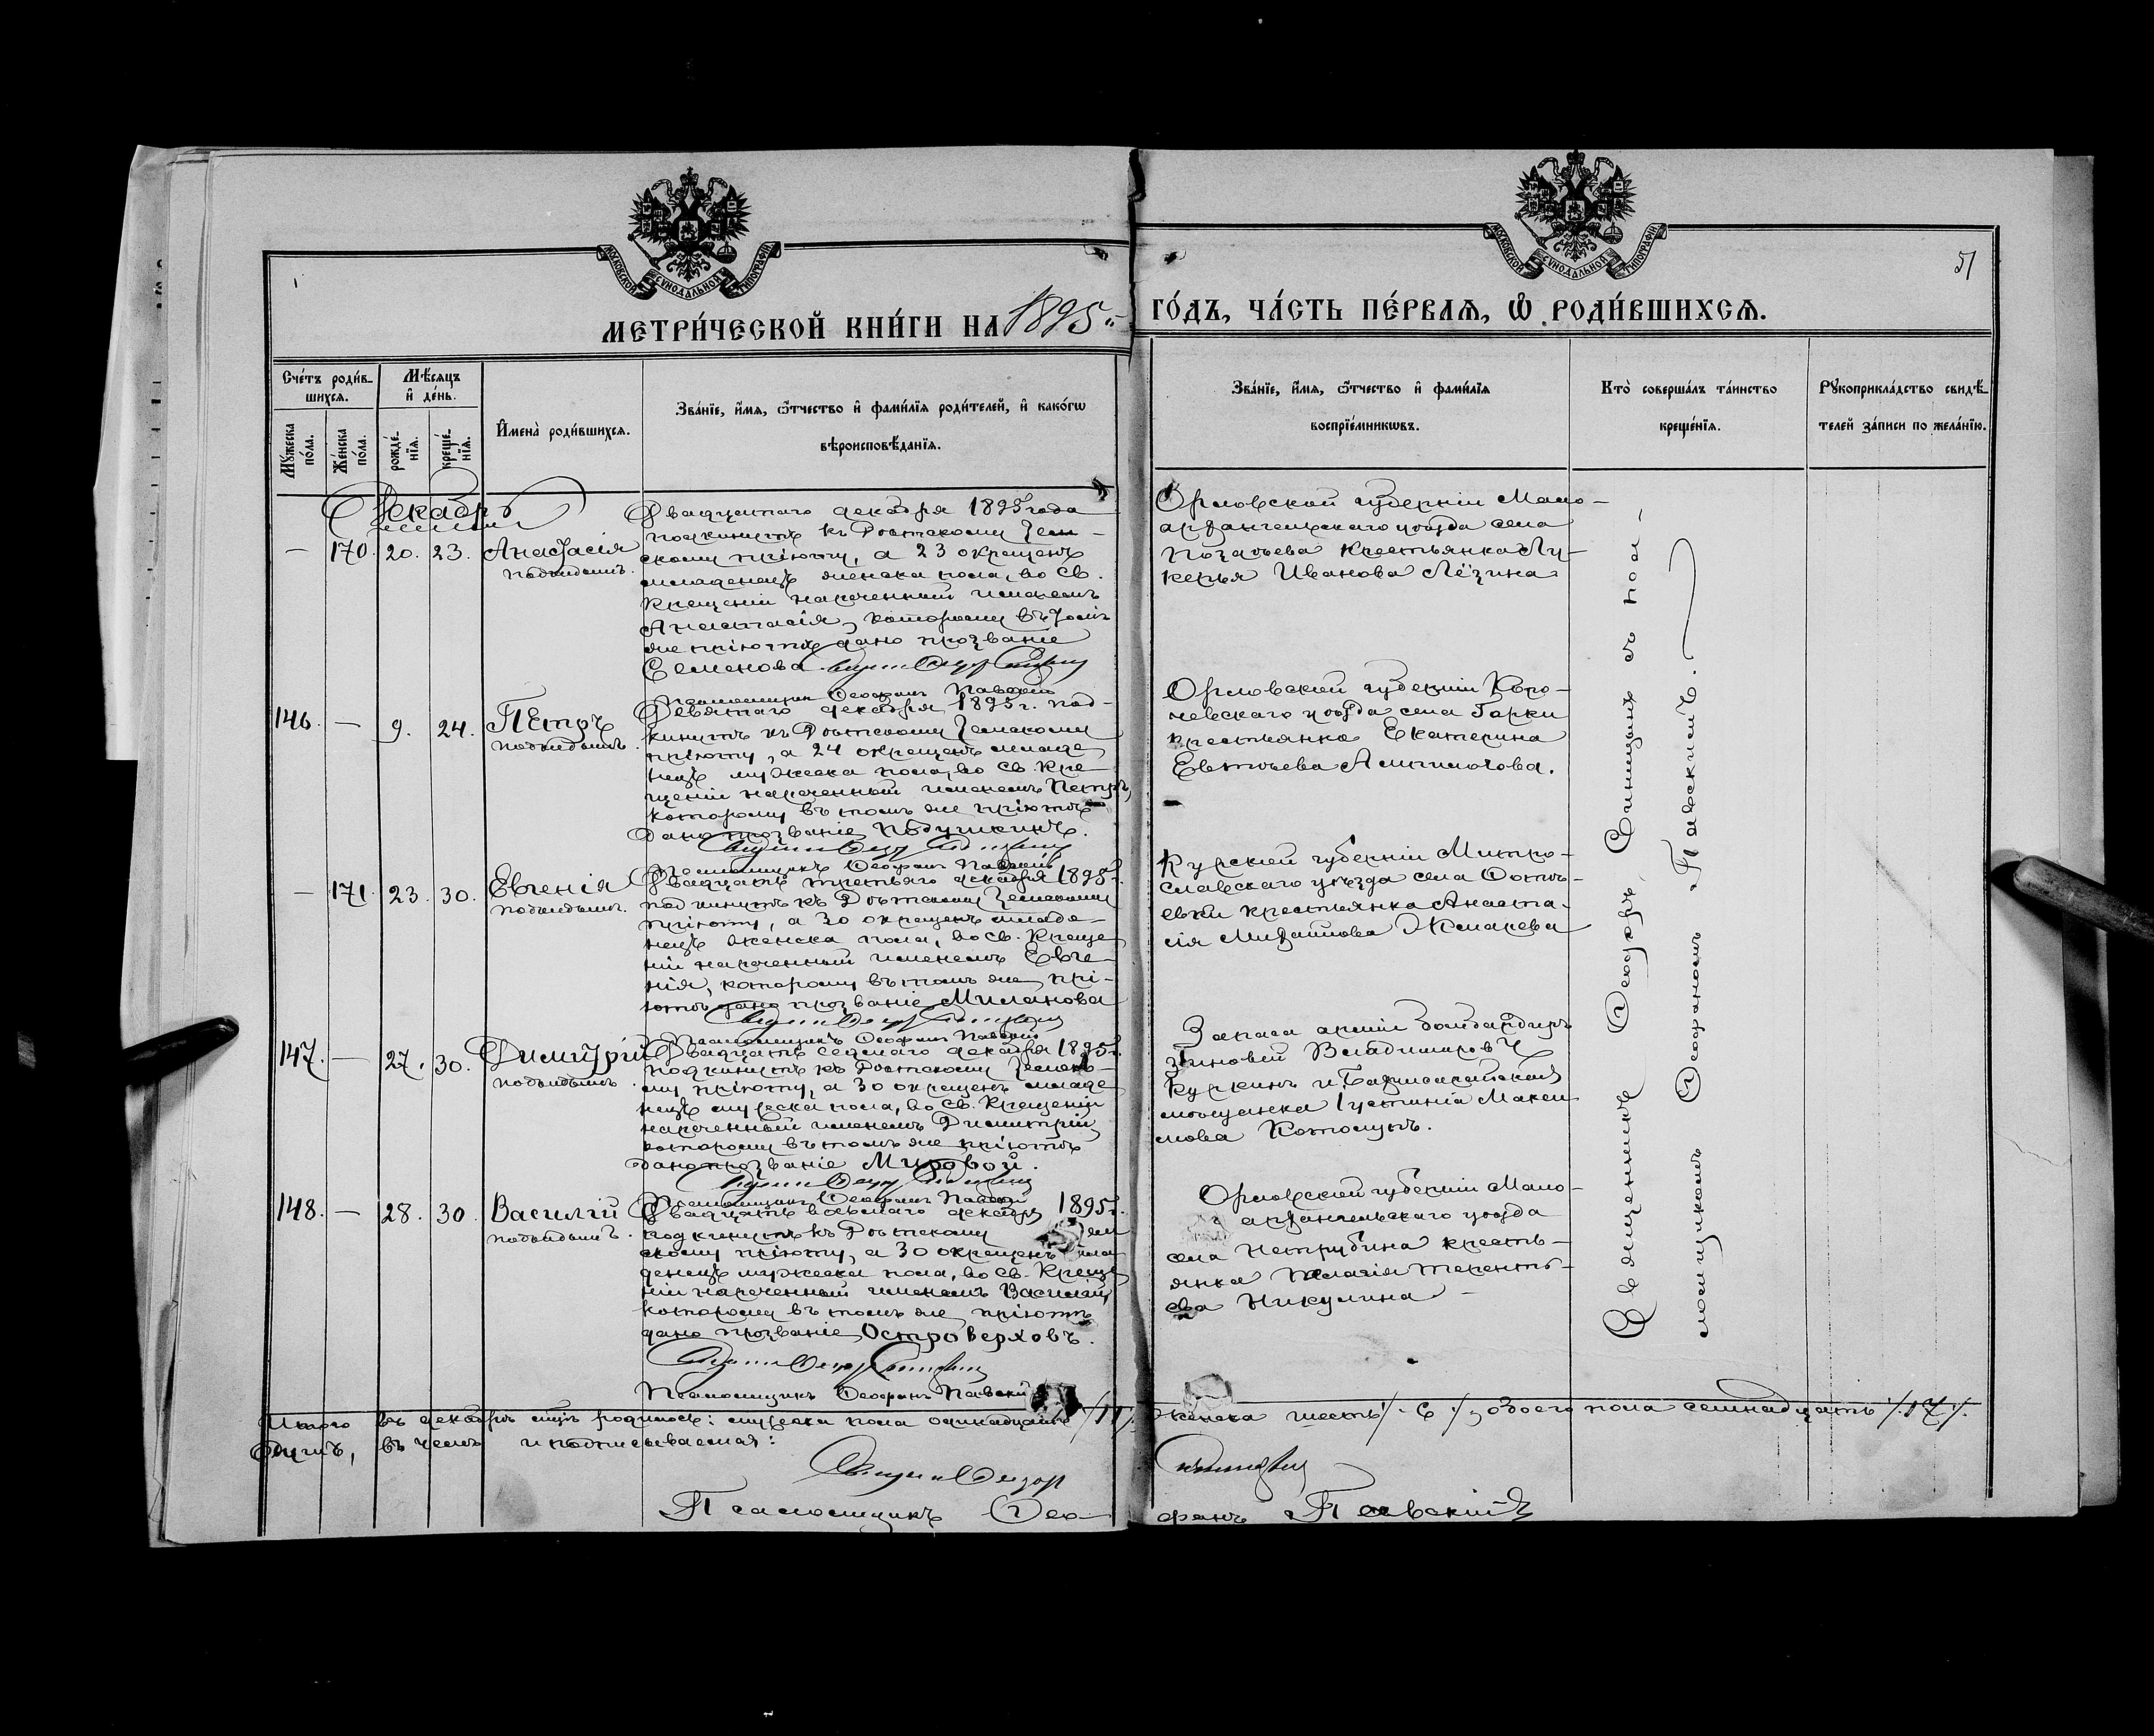 МОСКОВСКОЙ СѴНОДАЛЬНОЙ ТИПОГРАФІИ
МОСКОВСКОЙ СѴНОДАЛЬНОЙ ТИПОГРАФІИ
51
МЕТРИ́ЧЕСКОЙ КНИ́ГИ НА 1895 ГО́ДЪ, ЧА́СТЬ ПЕ́РВАЯ, Ѡ РОДИ́ВШИХСЯ.
Сче́тъ роди́в-
шихся.
Мꙋ́жеска по́ла.
Же́нска по́ла.
Мѣ́сяцъ и҆ де́нь.
рожде́-нїя.
креще́-нїя.
И҆мена̀ роди́вшихся.
Зва́нїе, и҆́мя, ѻ҆́тчество и҆ фами́лїя роди́телей, и҆ како́гѡ
вѣроисповѣ́данїя.
Зва́нїе, и҆́мя, ѻ҆́тчество и҆ фами́лїя
воспрїе́мникѡвъ.
Кто̀ соверша́лъ та́инство
креще́нїя.
Рꙋкоприкла́дство свидѣ́-
телей за́писи по жела́нїю.
Декабрь
— 170. 20. 23. Анастасія
подкидышъ.
Двадцатаго декабря 1895 года
подкинутъ къ Дѣтскому Зем-
скому пріюту, а 23 окрещенъ
младенецъ женска пола, во Св.
Крещеніи нареченный именемъ
Анастасія, которому въ томъ
же пріютѣ дано прозваніе
Семенова
Псаломщикъ Ѳеофанъ Павскій
Орловской губерніи Мало-
архангельскаго уѣзда села
крестьянка Лу-
керья Иванова Лёзина
146. — 9. 24. Петръ
подкидышъ.
Девятаго декабря 1895 г. под-
кинутъ къ Дѣтскому Земскому
пріюту, а 24 окрещенъ младе
нецъ мужеска пола, во Св. Кре
щеніи нареченный именемъ Петръ,
которому въ томъ же пріютѣ
дано прозваніе Подушкинъ.
Псаломщикъ Ѳеофанъ Павскій
Орловской губерніи Кро-
мскаго уѣзда села Гарки
крестьянка Екатерина
Евтѣева
— 171. 23. 30. Евгенія
подкидышъ.
Двадцать третьяго декабря 1895 г.
подкинутъ къ Дѣтскому Земскому
пріюту, а 30 окрещенъ младе-
нецъ женска пола, во Св. Креще
ніи нареченный именемъ Евге-
нія, которому въ томъ же прі-
ютѣ дано прозваніе Миланова
Псаломщикъ Ѳеофанъ Павскій
Курской губерніи
уѣзда села
крестьянка Анаста-
сія Михайлова
147. — 27. 30. Димитрій
подкидышъ.
Двадцать седьмаго декабря 1895 г.
подкинутъ къ Дѣтскому Земско-
му пріюту, а 30 окрещенъ младе
нецъ мужеска пола, во Св. Крещеніи
нареченный именемъ Димитрій,
которому въ томъ же пріютѣ
дано прозваніе Мировой.
Псаломщикъ Ѳеофанъ Павскій
Запаса арміи бомбардиръ
Зиновій Владимировъ
Куркинъ и Бахчисарайская
мѣщанка Іустинія Макси
мова
148. — 28. 30. Василій
подкидышъ.
Двадцать восьмаго декабря 1895 г.
подкинутъ къ Дѣтскому Зем
скому пріюту, а 30 окрещенъ мла
денецъ мужеска пола, во Св. Креще
ніи нареченный именемъ Василій,
которому въ томъ же пріютѣ
дано прозваніе Островерховъ.
Псаломщикъ Ѳеофанъ Павскій
Орловской губерніи Мало-
архангельскаго уѣзда
села Нетрубина кресть-
янка Пелагія Терентъ-
ева Никулина
Священникъ Ѳеодоръ Синицынъ съ пса-
ломщикомъ Ѳеофаномъ Павскимъ.
Итого въ декабрѣ мцѣ родилось: мужеска пола одинадцать /11/ женска шесть /.6./, обоего пола семнадцать /.17/.
душъ, въ чемъ и подписываемся:
Псаломщикъ Ѳео-фанъ Павскій